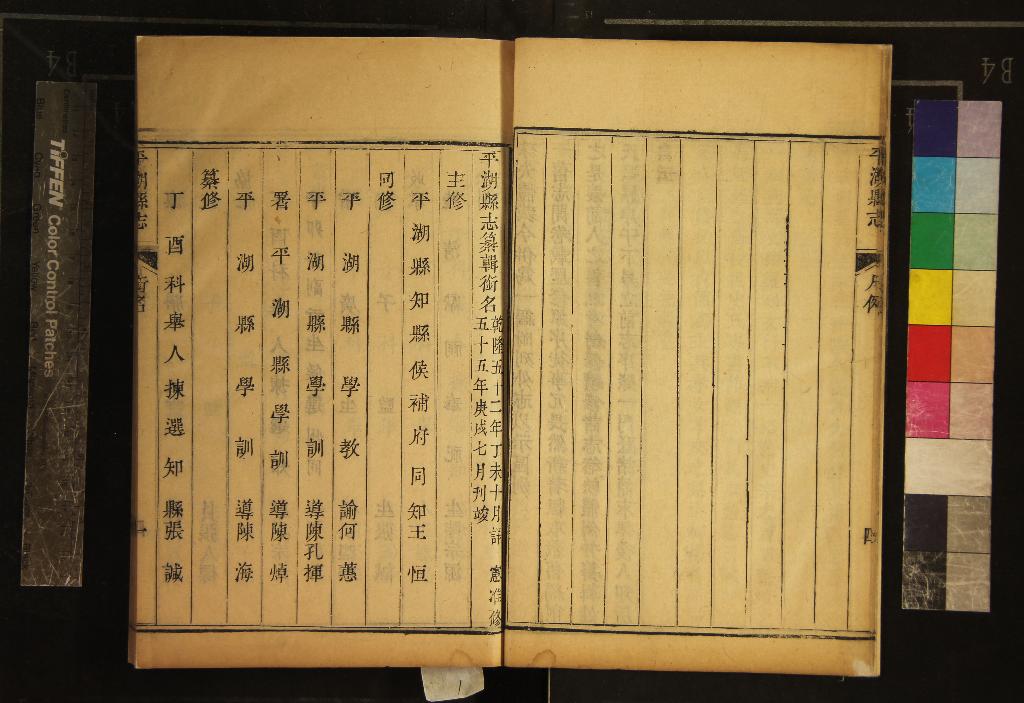 平湖縣志
凡例
四
平湖縣志纂輯銜名 乾隆五十二年丁未十月請 憲准修
五十五年庚戌七月刋竣
主修
平湖縣知縣侯補府同知王恒
同修
平湖縣學教諭何蕙
平湖縣學訓導陳孔揮
署平湖縣學訓導陳焯
平湖縣學訓導陳海
纂修
丁酉科舉人揀選知縣張誠
平湖縣志
銜名
一
TIFFEN Color Control Patches
B4
B4
1